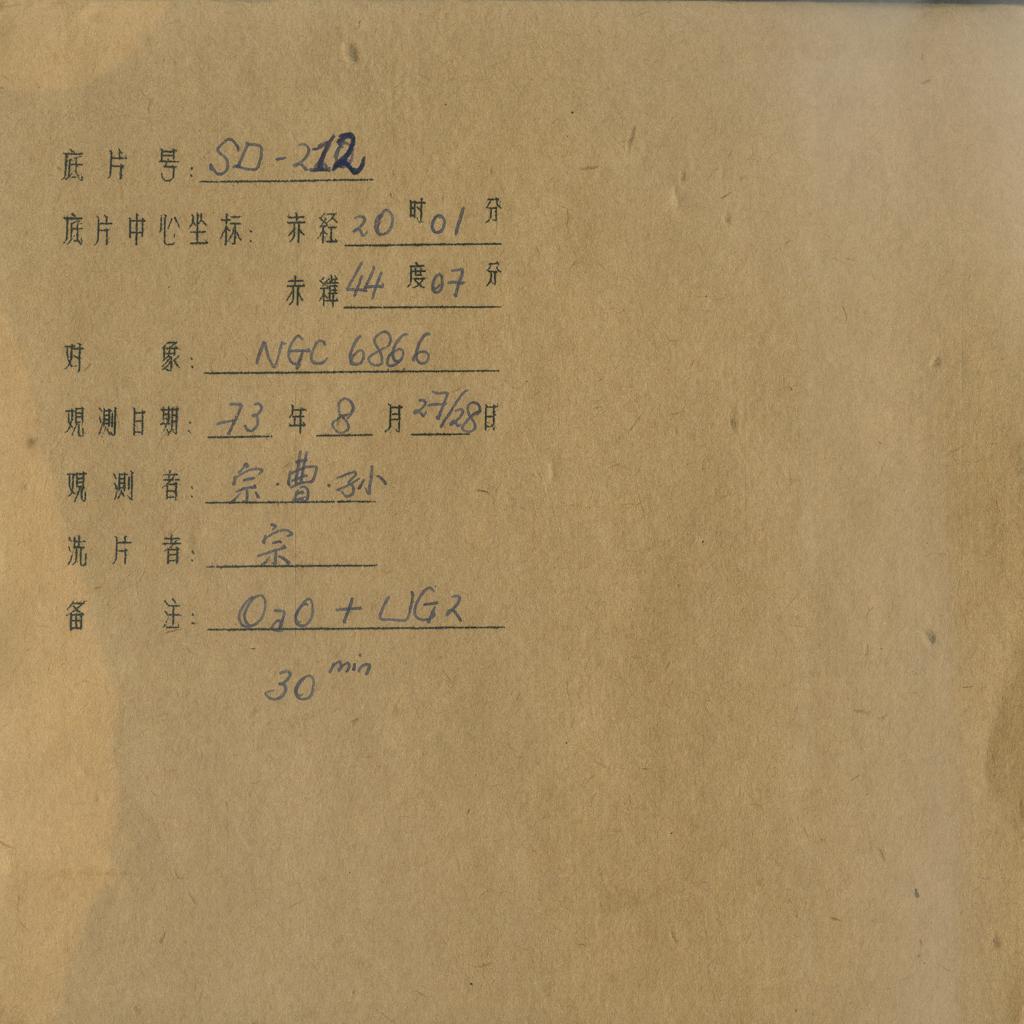 底片号: SD-212
底片中心坐标: 赤经 20 时 01 分
赤緯 44 度 07 分
对象: NGC 6866
观测日期: 73 年 8 月 27/28 日
观测者: 宗·曹·孙
洗片者: 宗
备注: OaO + UG2
30 min